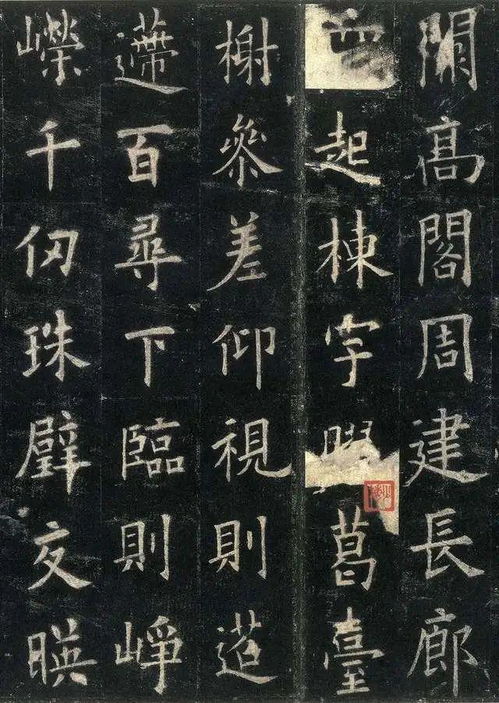 闕高閣周建長廊
四起棟宇葛臺
榭參差仰視則迢
遰百尋下臨則崢
嶸千仞珠璧交暎